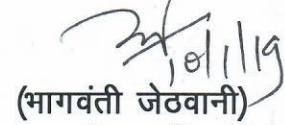 10/1/19
(भागवंती जेठवानी)